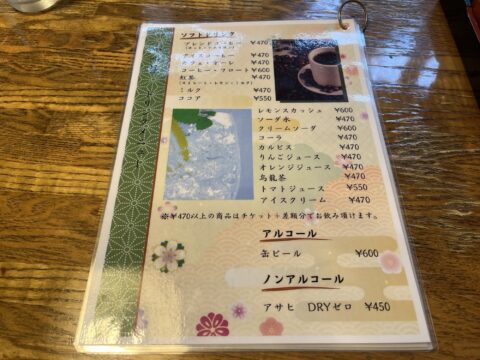 ソフトドリンク
ブレンドコーヒー ¥470
アイスコーヒー ¥470
カフェ・オーレ ¥470
コーヒー・フロート ¥600
紅茶 ¥470
(ストレート・レモン・ミルク)
ミルク ¥470
ココア ¥550
レモンスカッシュ ¥600
ソーダ水 ¥470
クリームソーダ ¥600
コーラ ¥470
カルピス ¥470
りんごジュース ¥470
オレンジジュース ¥470
烏龍茶 ¥470
トマトジュース ¥550
アイスクリーム ¥470
※¥470以上の商品はチケット+差額分でお飲み頂けます。
アルコール
缶ビール ¥600
ノンアルコール
アサヒ DRYゼロ ¥450